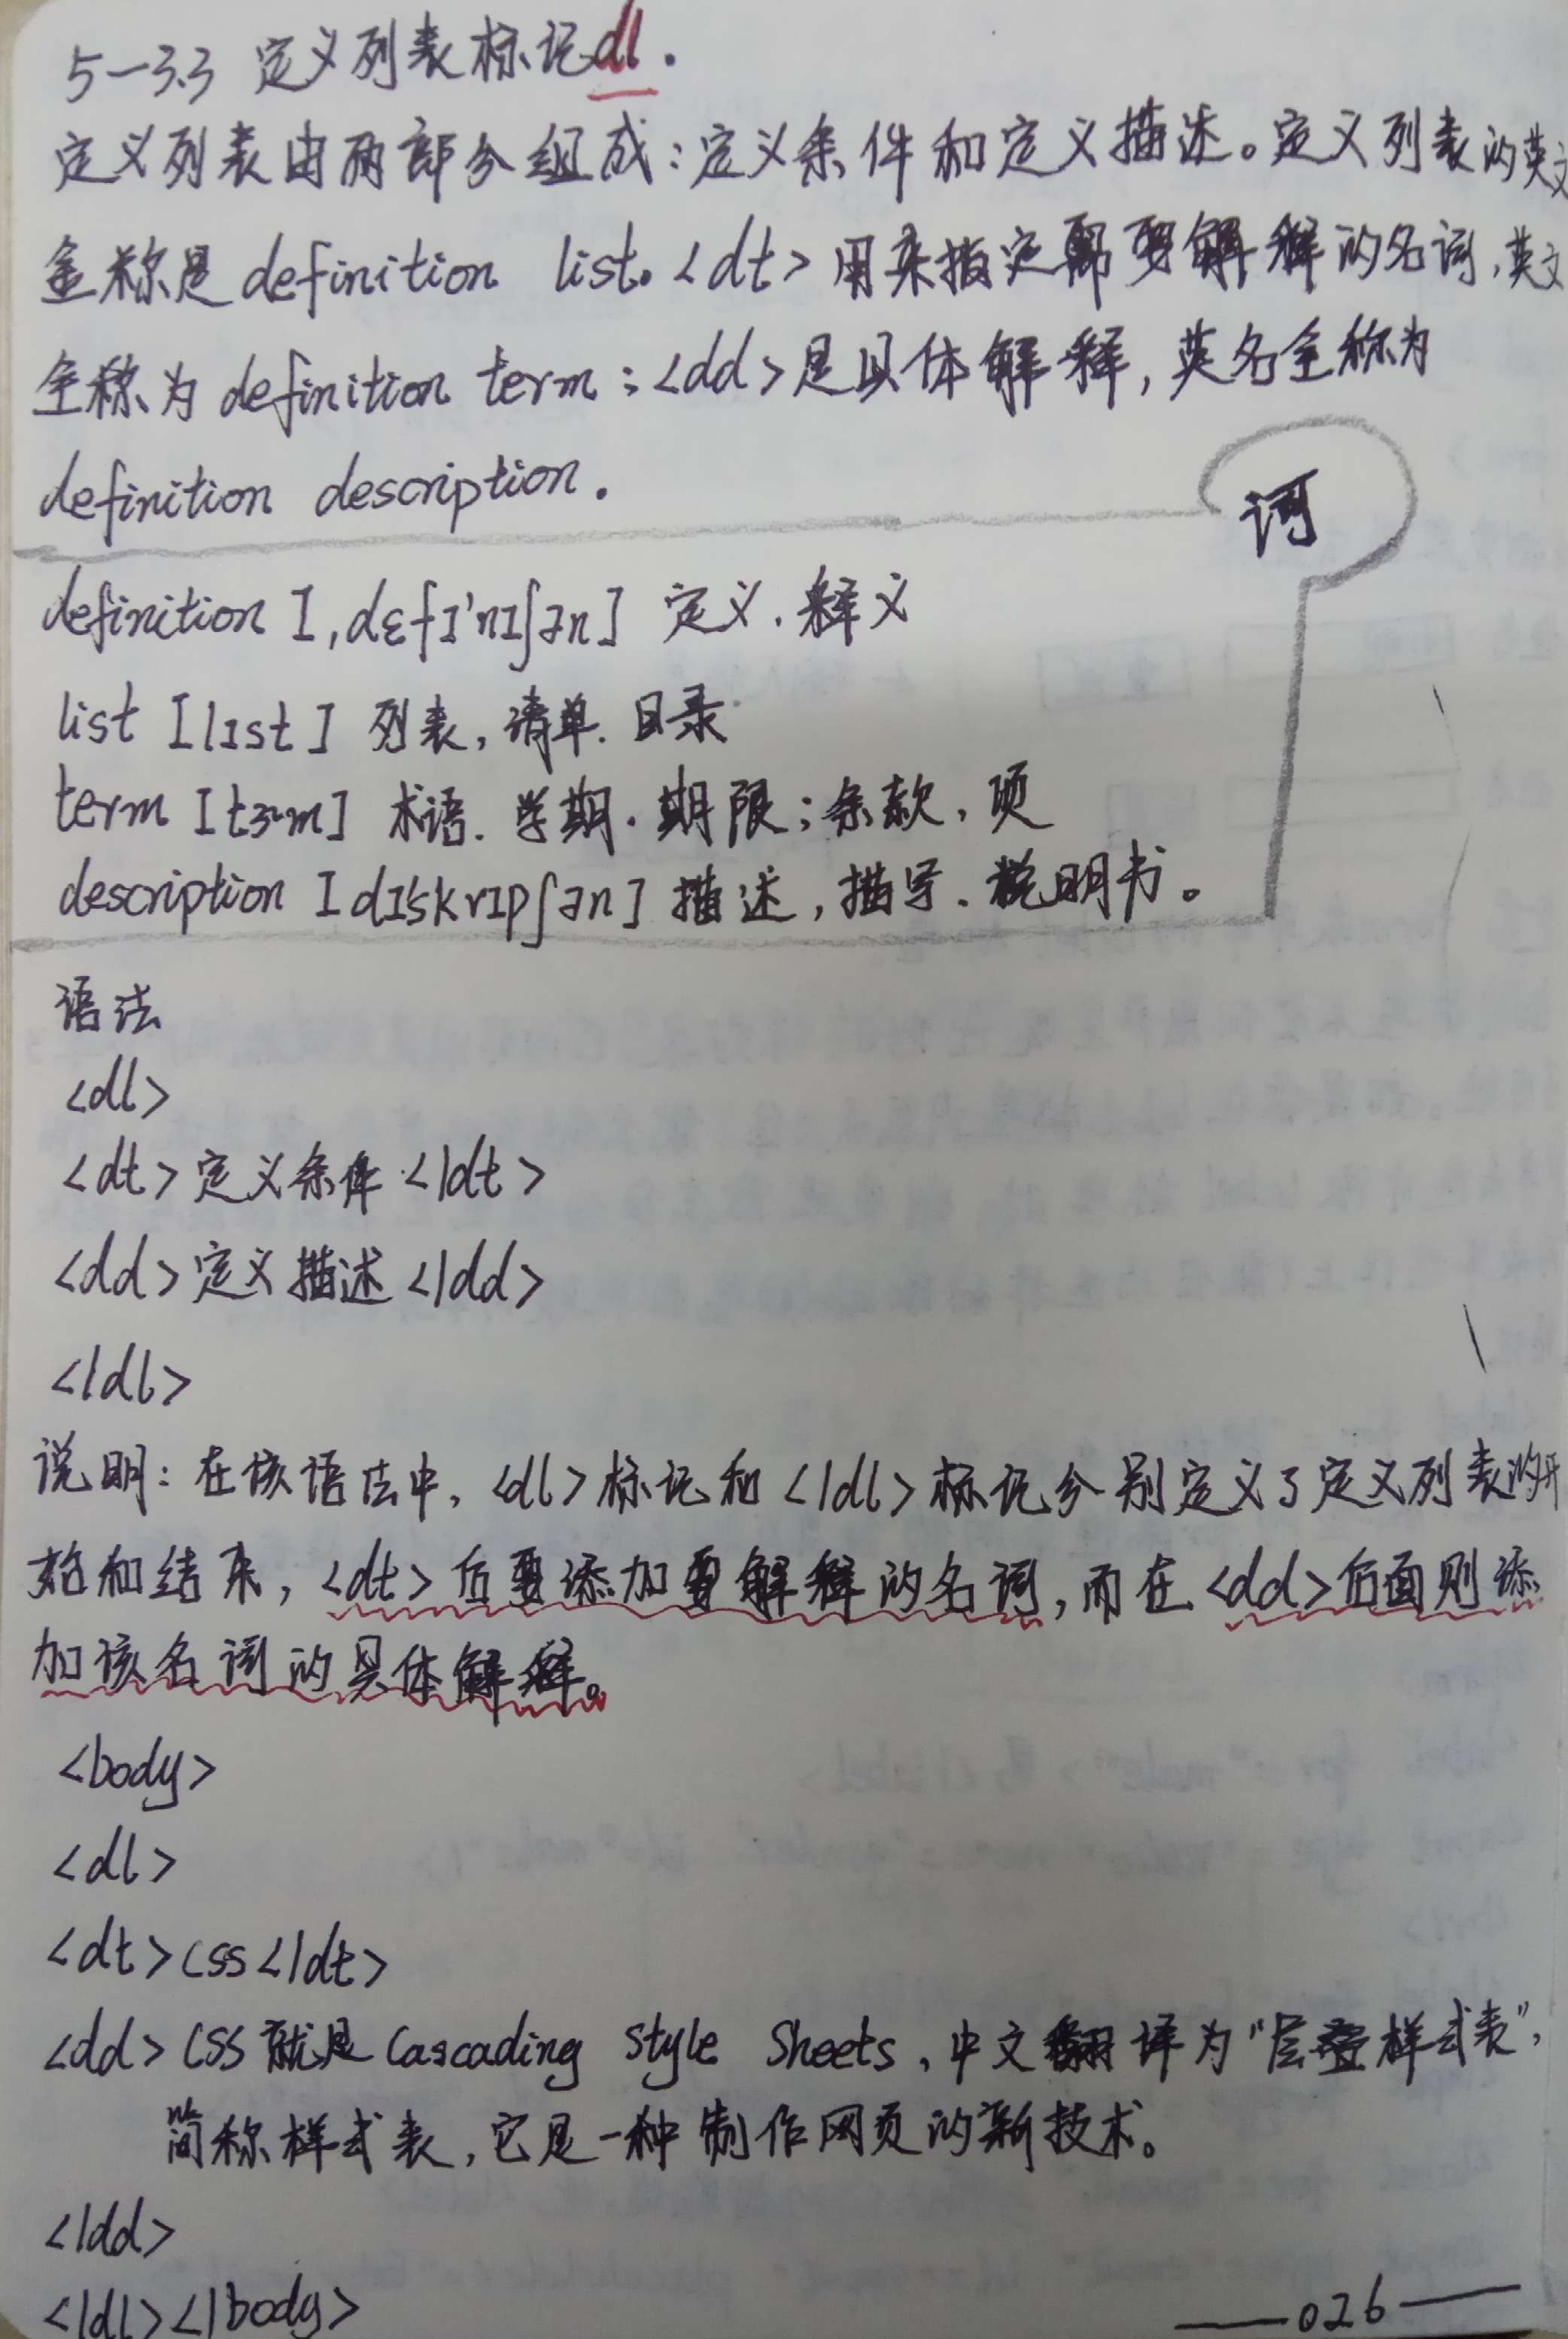 5-3.3 定义列表标记dl.
定义列表由两部分组成:定义条件和定义描述。定义列表的英文
全称是 definition list。<dt>用来指定需要解释的名词,英文
全称为 definition term;<dd>是具体解释,英名全称为
definition description.
词
definition [,dɛfɪ'nɪʃən] 定义.释义
list [lɪst] 列表,清单.目录
term [tɝm] 术语.学期.期限;条款,项
description [dɪ'skrɪpʃən] 描述,描写.说明书。
语法
<dl>
<dt>定义条件</dt>
<dd>定义描述</dd>
</dl>
说明:在该语法中,<dl>标记和</dl>标记分别定义了定义列表的开
始和结束,<dt>后要添加要解释的名词,而在<dd>后面则添
加该名词的具体解释。
<body>
<dl>
<dt>CSS</dt>
<dd>CSS就是Cascading Style Sheets,中文翻译为"层叠样式表",
简称样式表,它是一种制作网页的新技术。
</dd>
</dl></body>
—026—